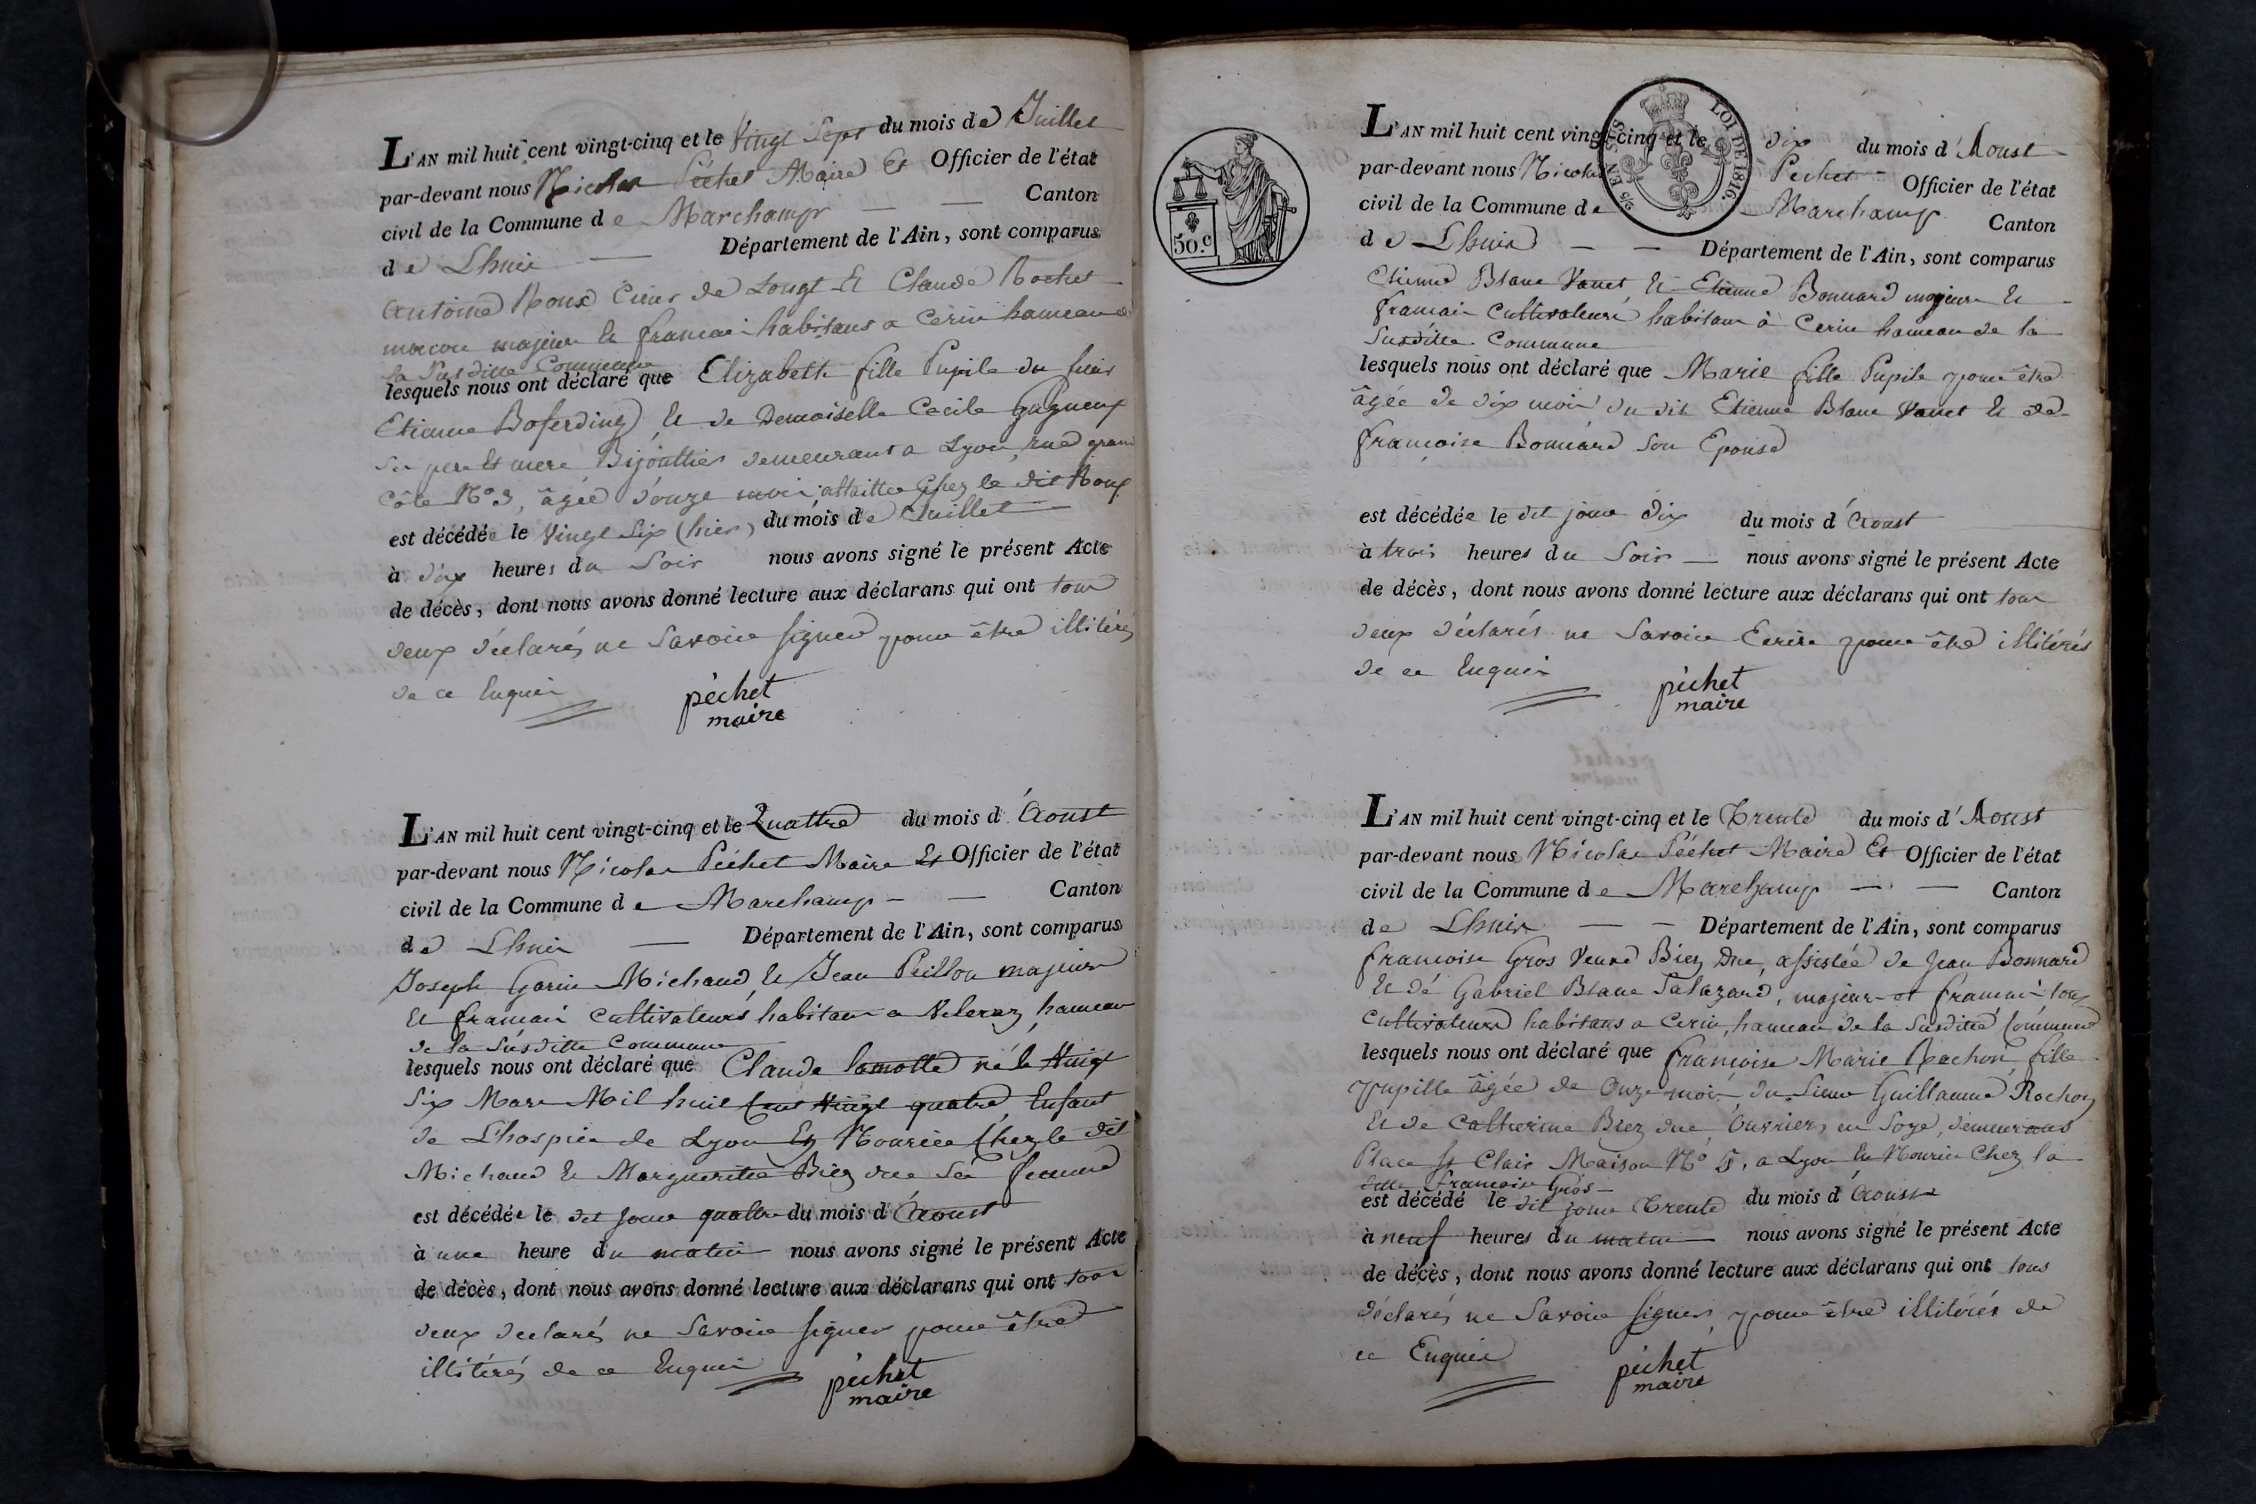 L'AN mil huit cent vingt-cinq et le Vingt Sept du mois de Juillet
par-devant nous Nicolas Péchet Maire Et Officier de l'état
civil de la Commune de Marchamp — — Canton
de Lhuis — Département de l'Ain, sont comparus
Antoine Roux de et Claude Rochet
macon majeurs et francais habitans a Cerin hameau de
la Susditte Commune
lesquels nous ont déclaré que Elizabeth fille Pupile du sieur
Etienne Boferding et de Demoiselle Cecile Gagneux
ses pere et mere Bijouttier demeurant a Lyon, rue grand
Côte N° 3, âgée d'onze mois allaittée chez le dit Roux
est décédée le Vingt Six (hier) du mois de Juillet
à dix heures du Soir nous avons signé le présent Acte
de décès, dont nous avons donné lecture aux déclarans qui ont tous
deux déclarés ne Savoir signer pour être illitérés
de ce Enquis
péchet
maire
L'AN mil huit cent vingt-cinq et le Quattre du mois d'Aoust
par-devant nous Nicolas Péchet Maire Et Officier de l'état
civil de la Commune de Marchamp — — Canton
de Lhuis — Département de l'Ain, sont comparus
Joseph Garin Michaud, et Jean Peillon majeurs
et francais cultivateurs habitans a hameau
de la Susditte Commune
lesquels nous ont déclaré que Claude Lamotte né le Vingt
Six Mars Mil huit Cent Vingt quatre, Enfant
de Lhospice de Lyon En Nourice Chez le dit
Michaud et Marguerite Biez sa femme
est décédée le dit jour quattre du mois d'Aoust
à une heure du matin nous avons signé le présent Acte
de décès, dont nous avons donné lecture aux déclarans qui ont tous
deux declarés ne Savoir signer pour être
illitérés de ce Enquis
péchet
maire
50.c
EN SUS
LOI DE 1816.
L'AN mil huit cent vingt-cinq et le dix du mois d'Aoust
par-devant nous Nicolas Péchet Officier de l'état
civil de la Commune de Marchamp Canton
de Lhuis — — Département de l'Ain, sont comparus
Etienne Blanc Vanet et Etienne Bonnard majeurs et
francais Cultivateurs habitans à Cerin hameau de la
Susditte Commune
lesquels nous ont déclaré que Marie fille Pupile pour être
âgée de dix mois du dit Etienne Blanc Vanet et de
françoise Bonnard son Epouse
est décédée le dit jour dix du mois d'Aoust
à trois heures du Soir — nous avons signé le présent Acte
de décès, dont nous avons donné lecture aux déclarans qui ont tous
deux déclarés ne Savoir Ecrire pour être illitérés
de ce Enquis
péchet
maire
L'AN mil huit cent vingt-cinq et le Trente du mois d'Aoust
par-devant nous Nicolas Péchet Maire Et Officier de l'état
civil de la Commune de Marchamp — — Canton
de Lhuis — — Département de l'Ain, sont comparus
françoise Gros Veuve Biez assistée de Jean Bonnard
et de Gabriel Blanc Salazard, majeurs et francais tous
cultivateurs habitans a Cerin, hameau de la Susditte Commune
lesquels nous ont déclaré que françoise Marie Rochon, fille
pupille âgée de Onze mois, du Sieur Guillaume Rochon
et de Catherine Biez Ouvriers en Soye, demeurans
Place St Clair Maison N° 5, a Lyon En Nourice Chez la
ditte francoise Gros
est décédé le dit jour Trente du mois d'Aoust
à neuf heures du matin nous avons signé le présent Acte
de décès, dont nous avons donné lecture aux déclarans qui ont tous
déclarés ne Savoir signer, pour être illitérés de
ce Enquis
péchet
maire